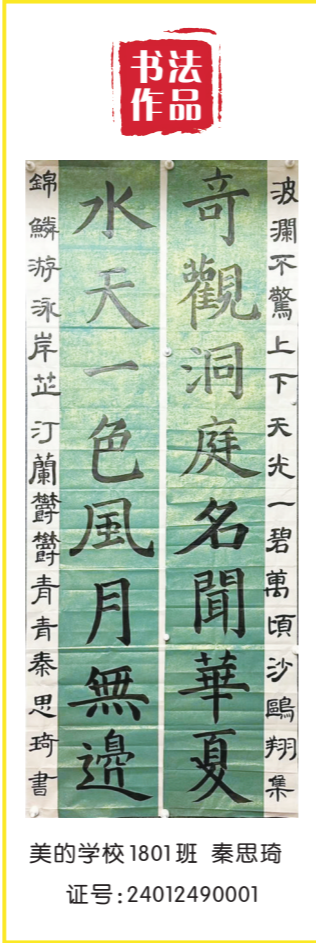 书法
作品
波瀾不驚上下天光一碧萬頃沙鷗翔集
奇觀洞庭名聞華夏
水天一色風月無邊
錦鱗游泳岸芷汀蘭欝欝青青秦思琦書
美的学校1801班 秦思琦
证号:24012490001